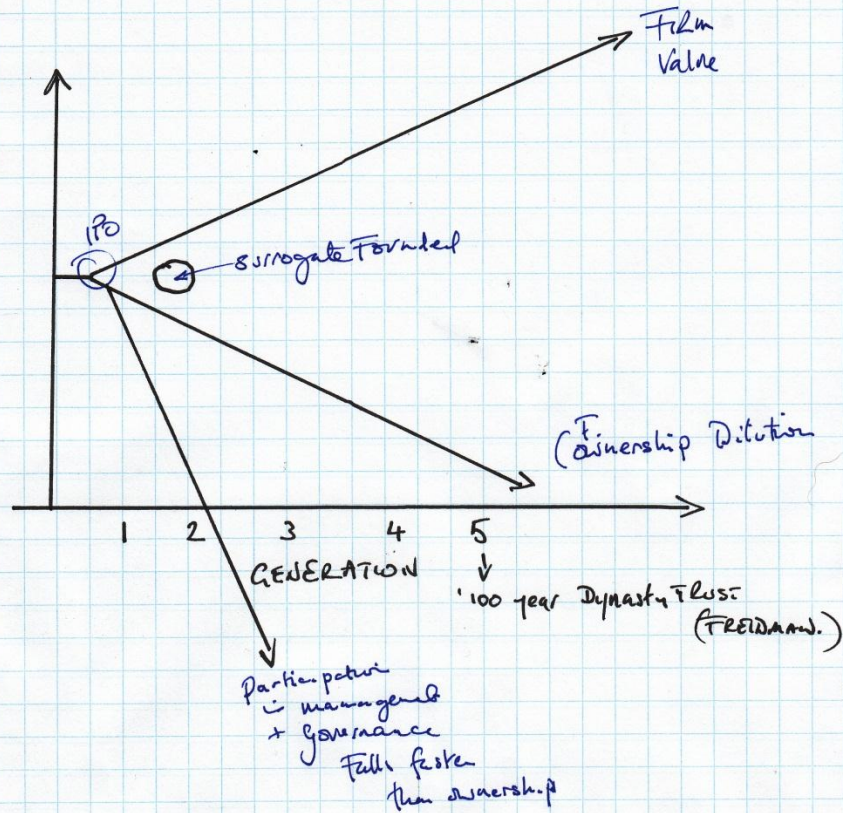 Firm
Value
IPO
surrogate Founded
F
(ownership Dilution
1 2 3 4 5
GENERATION
'100 year Dynasty TRUST
(FREIDMAN.)
Participation
in management
+ Governance
Falls faster
than ownership